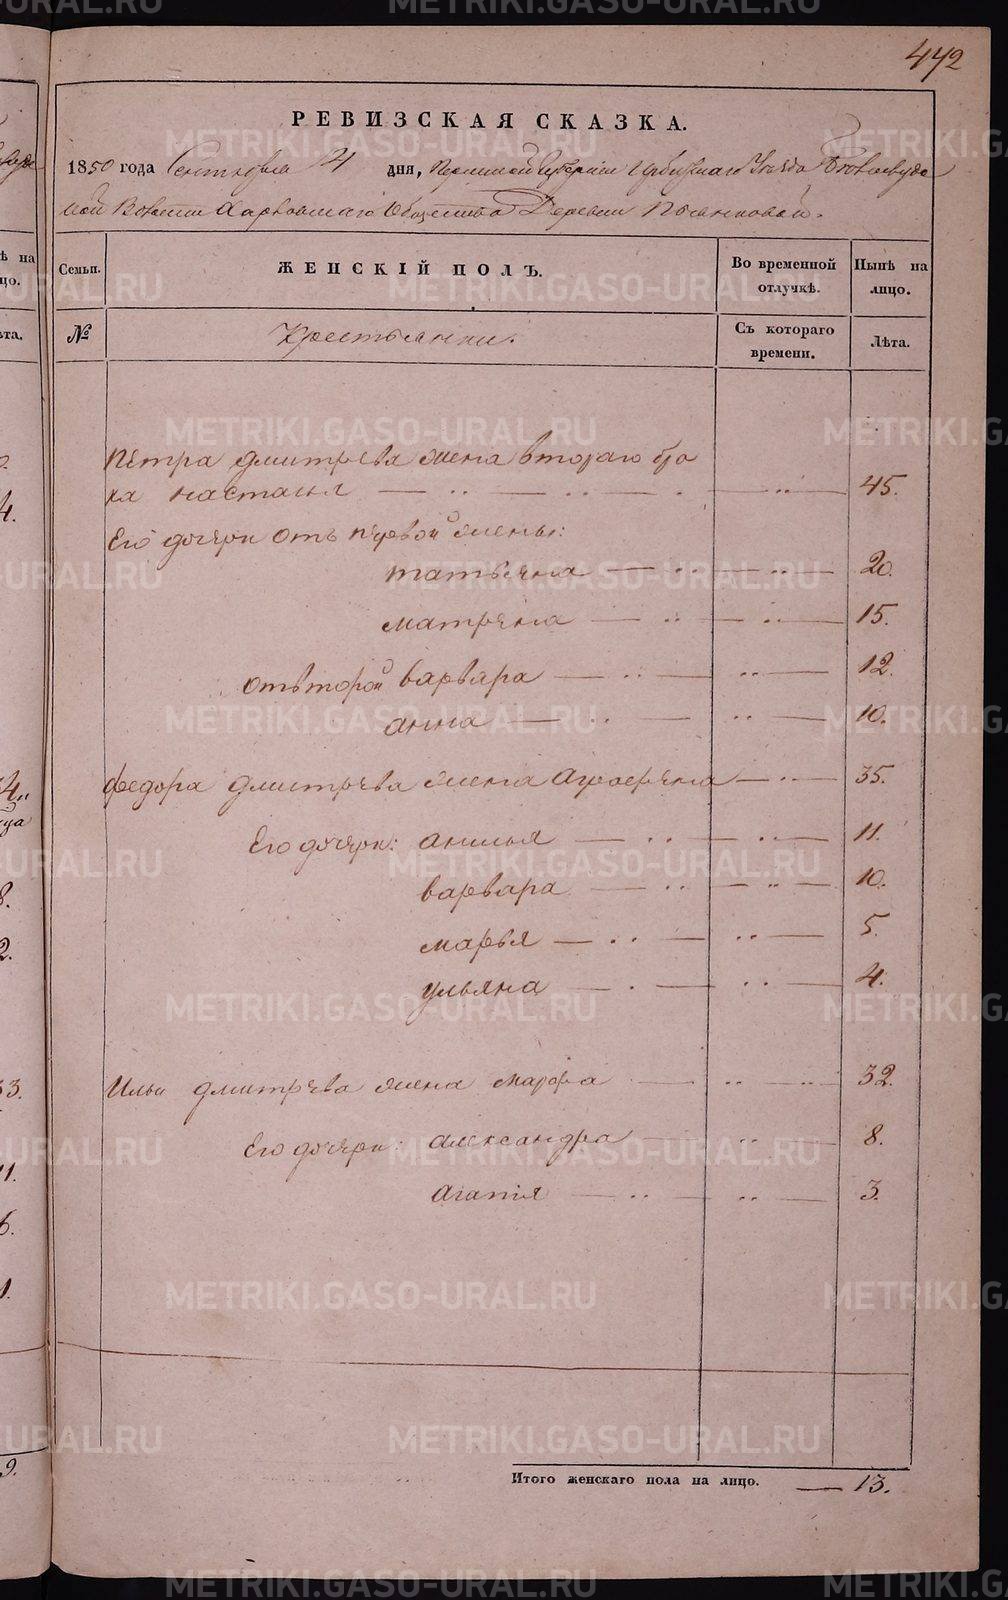 442
РЕВИЗСКАЯ СКАЗКА.
1850 года Сентября 4 дня, Пермской Губернiи Ирбитскаго Уѣзда
Волости Харловскаго Общества Деревни
Семьи. ЖЕНСКIЙ ПОЛЪ. Во временной отлучкѣ. Нынѣ на лицо.
№ Крестьянки. Съ котораго времени. Лѣта.
Петра Дмитрева жена втораго бра
ка настасья 45.
Его дочери отъ первой жены:
татьяна 20.
матрена 15.
отвторой варвара 12.
анна 10.
федора Дмитрева жена Агрофена 35.
Его дочери: анисья 11.
варвара 10.
марья 5.
ульяна 4.
Ильи дмитрева жена марфа 32.
Его дочери: александра 8.
Агапiя 3.
Итого женскаго пола на лицо. 13.
METRIKI.GASO-URAL.RU